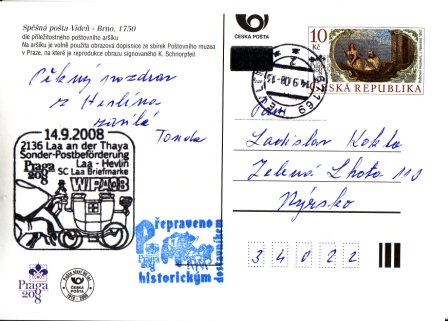 Spěšná pošta Vídeň - Brno, 1750
dle příležitostného poštovního aršíku
Na aršíku je volně použita obrazová dopisnice ze sbírek Poštovního muzea
v Praze, na které je reprodukce obrazu signovaného K. Schnorpfeil
ČESKÁ POŠTA
10
Kč
ČESKÁ REPUBLIKA
671 69 HEVLÍN
14.9.08-15
Pěkný pozdrav
z Hevlína
zasílá
Tonda
14.9.2008
2136 Laa an der Thaya
Sonder-Postbeförderung
Laa - Hevlin
SC Laa Briefmarke
Praga
2008
WIPA08
Přepraveno
Praga
2008
historickým
dostavníkem
Pan
Ladislav Kokta
Zelená Lhota 113
Nýrsko
34022
Praga
2008
ČESKÁ
POŠTA